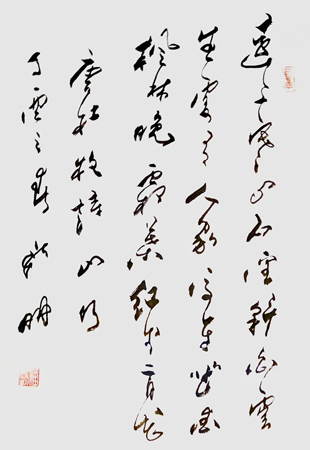 遠上寒山石徑斜白雲
生處有人家停車坐愛
楓林晚霜葉紅於二月花
唐杜牧詩山行
之春